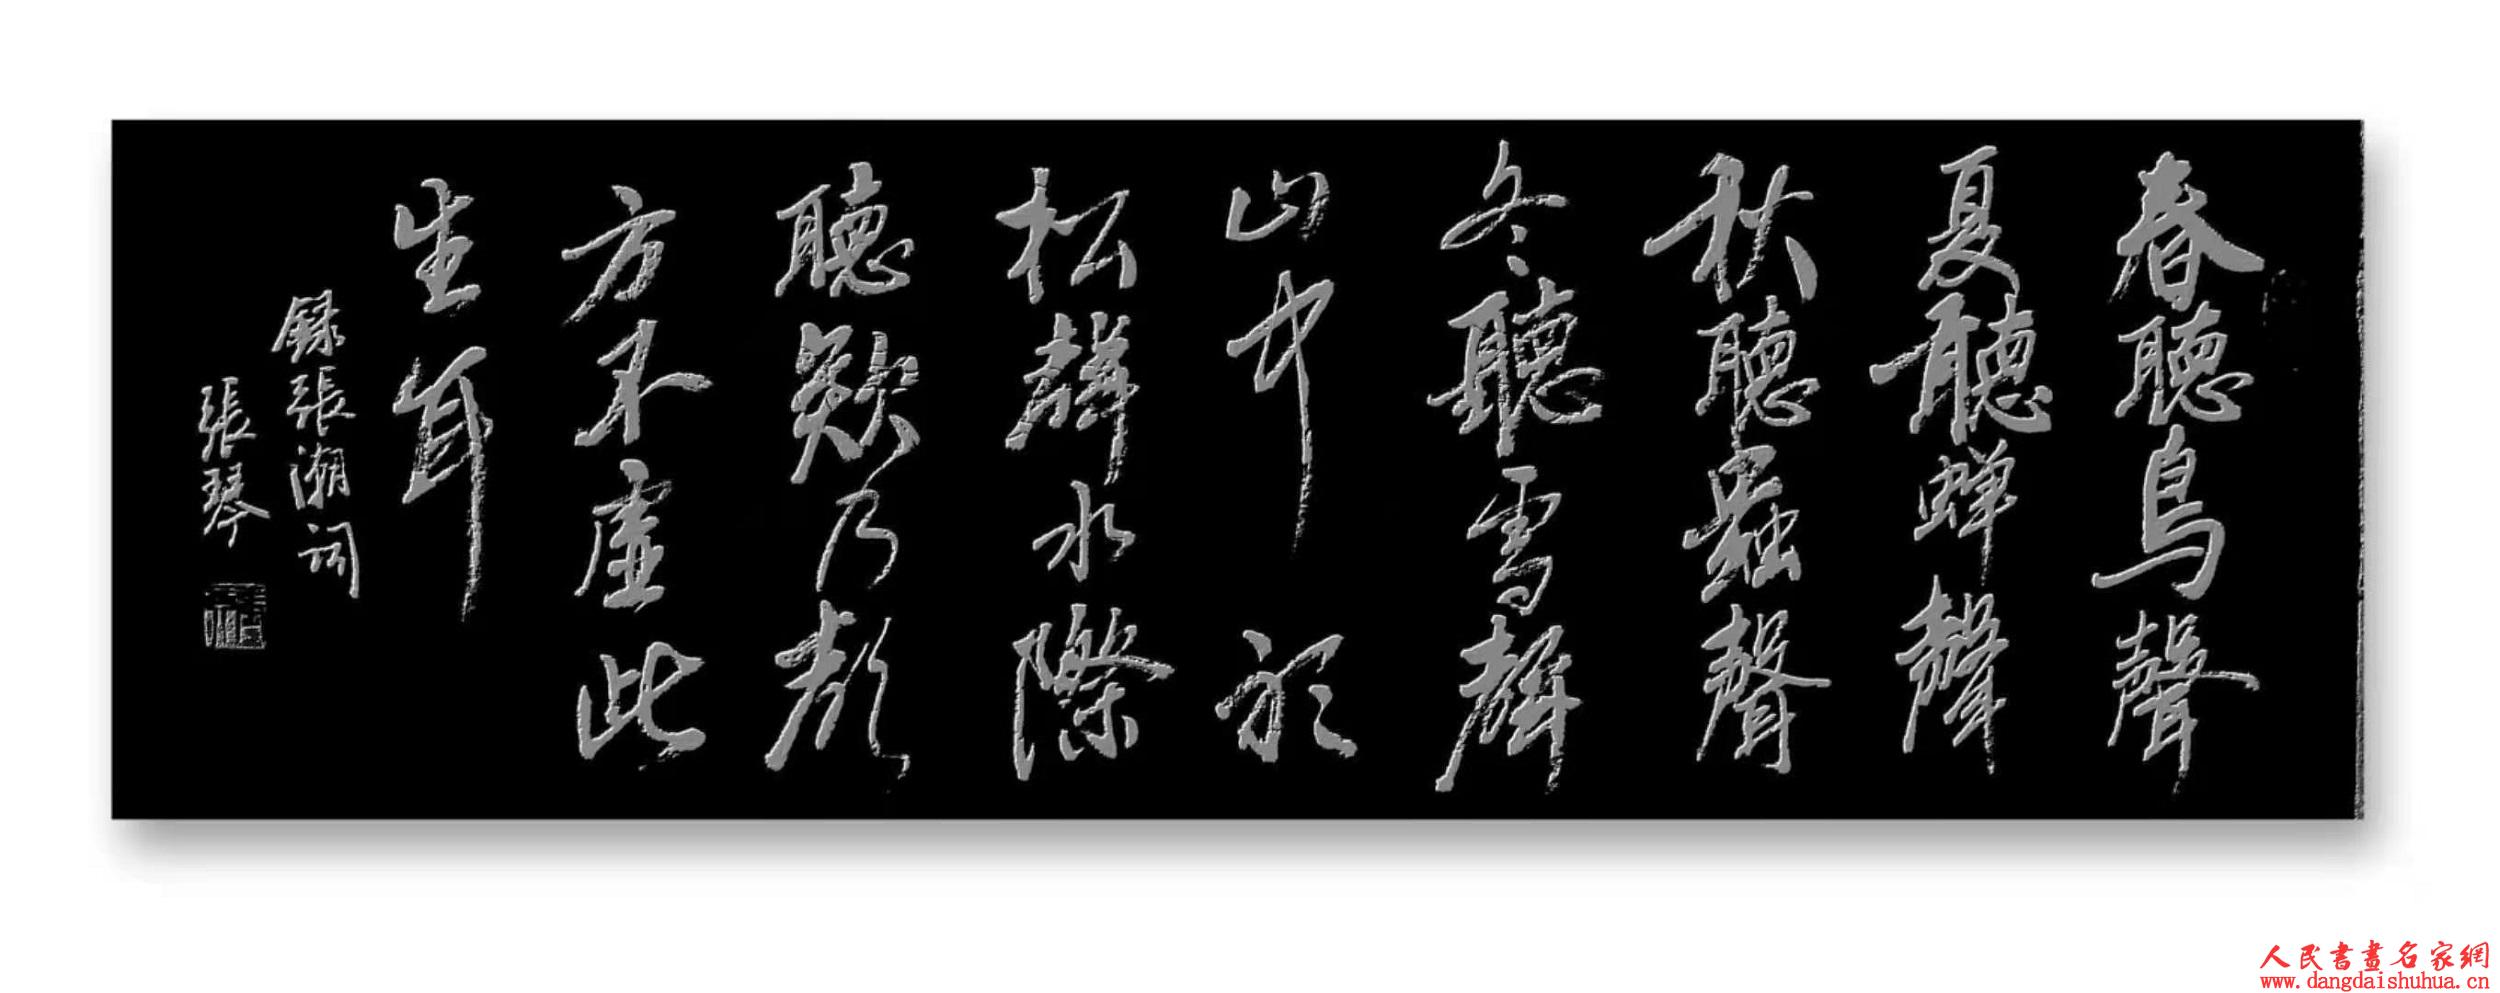 春聽鳥聲
夏聽蟬聲
秋聽蟲聲
冬聽雪聲
山中於
松聲水際
聽欸乃聲
方不虛此
生耳
錄張潮词
張琴
人民書畫名家網
www.dangdaishuhua.cn